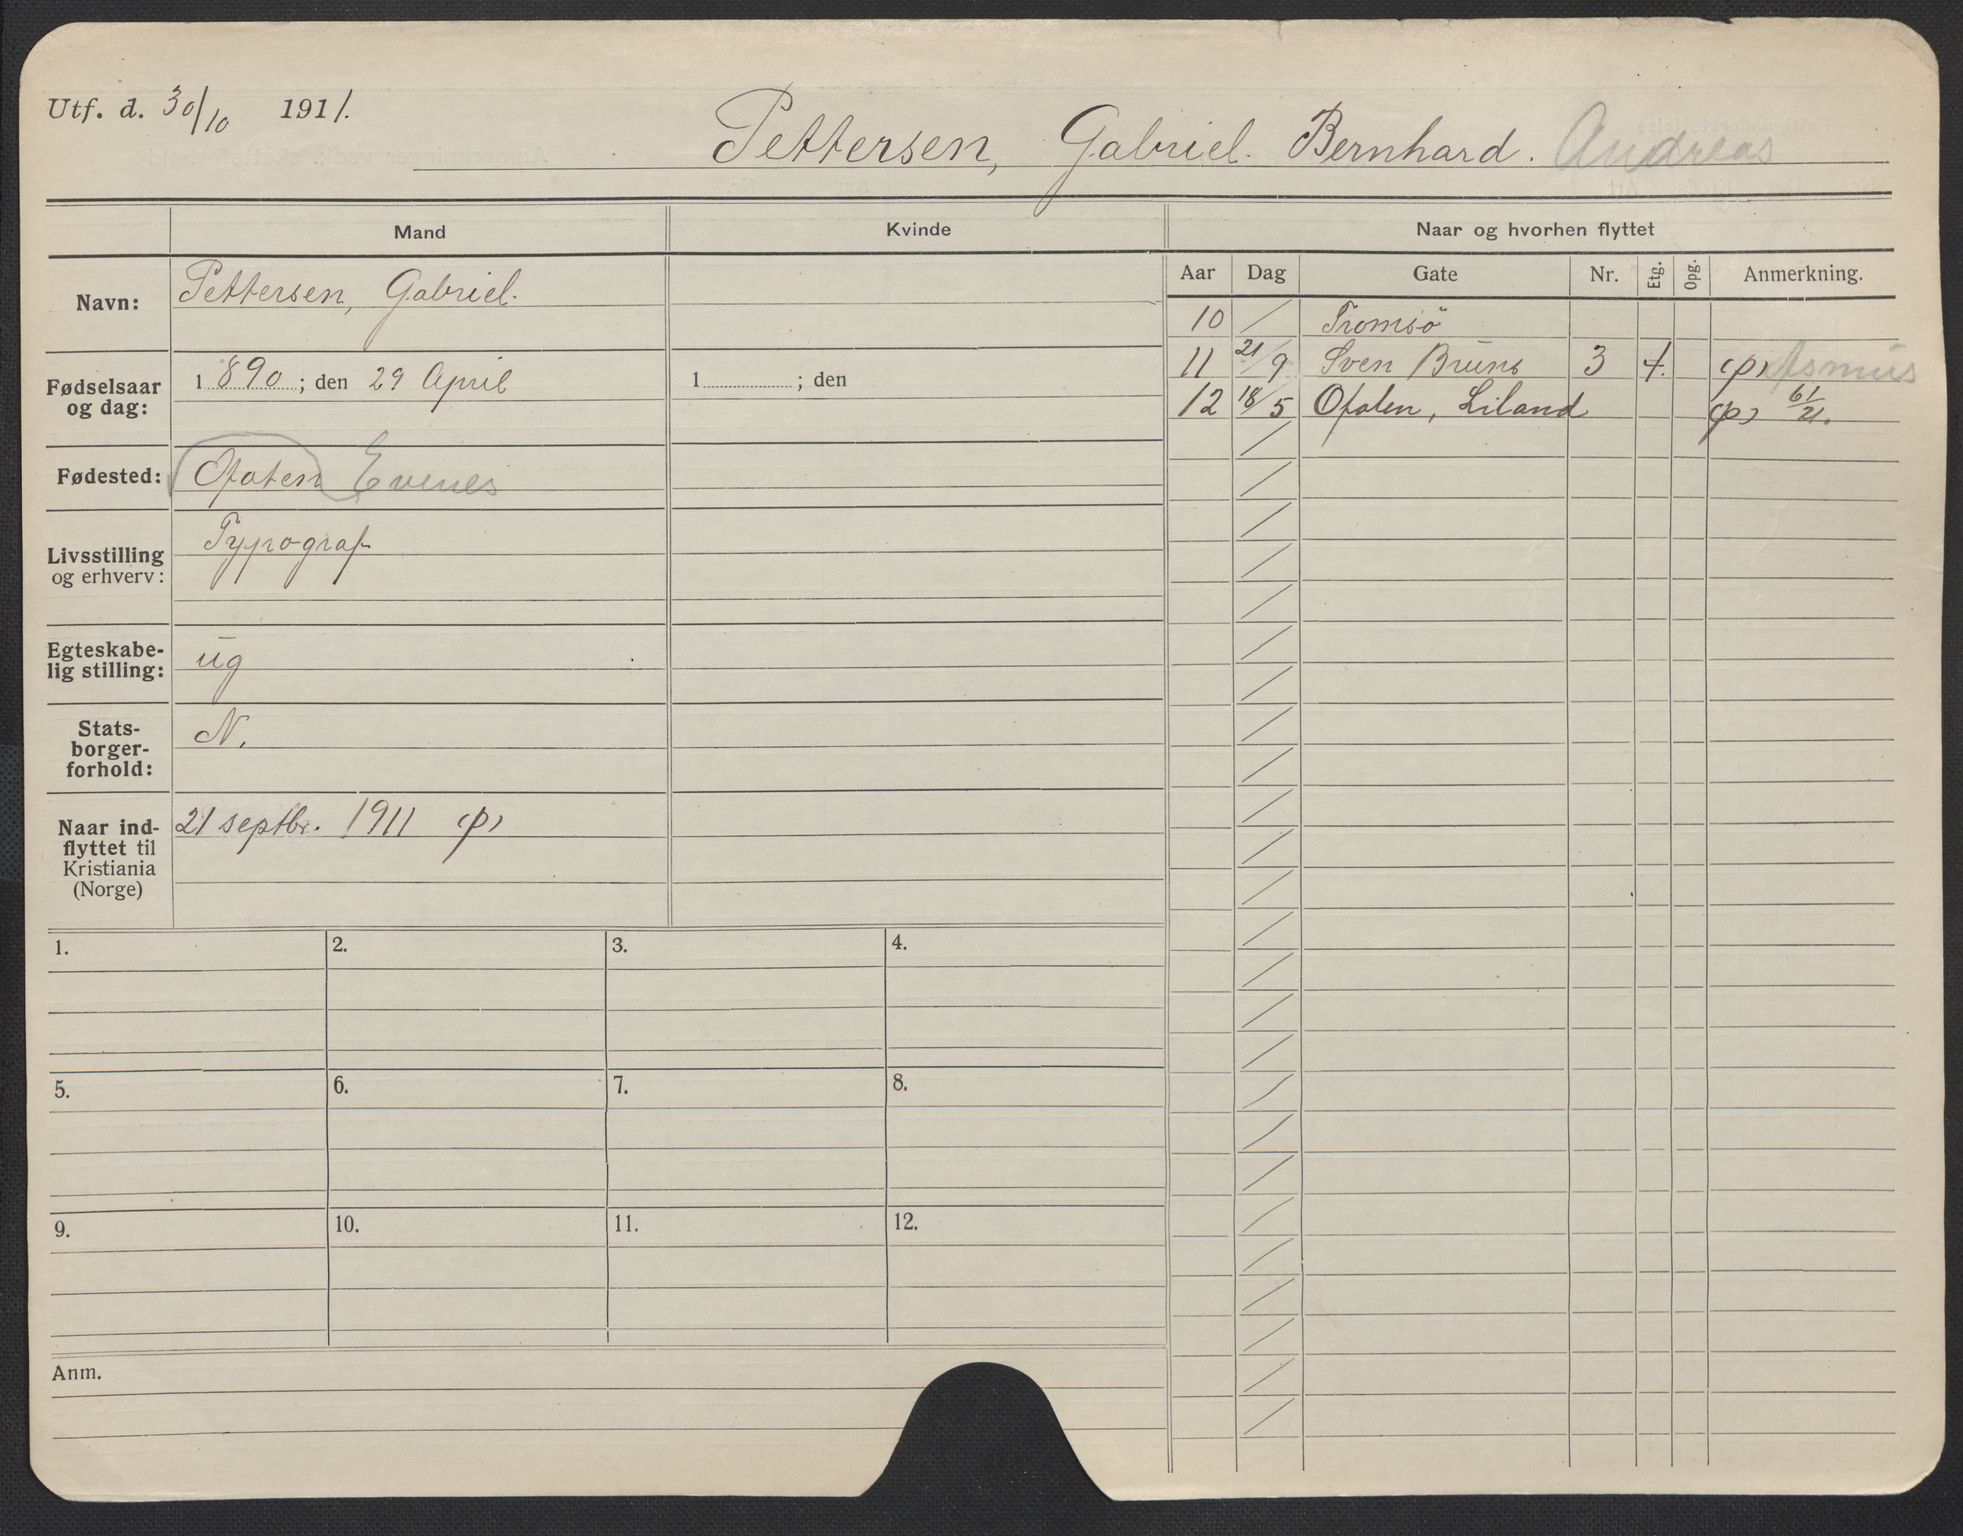 Utf. d. 30/10 1911.
Pettersen, Gabriel. Bernhard. Andreas
Mand Kvinde Naar og hvorhen flyttet
Aar Dag Gate Nr. Etg. Opg. Anmerkning.
Navn: Pettersen, Gabriel.
10 / Tromsö
11 21/9 Sven Bruns 3 4. (p) Asmus
12 18/5 Ofoten, Liland (p) 61/21.
Fødselsaar og dag: 1890; den 29 April 1 ; den
Fødested: Ofoten Evenes
Livsstilling og erhverv: Typograf
Egteskabe-
lig stilling: ug
Stats-
borger-
forhold: N.
Naar ind-
flyttet til
Kristiania
(Norge) 21 septbr. 1911 (p)
1. 2. 3. 4.
5. 6. 7. 8.
9. 10. 11. 12.
Anm.